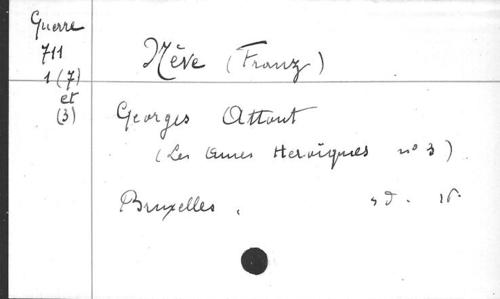 Guerre
711
1 (7)
et
(3)
Nève (Franz)
Georges Attout
(Les Ames Heroïques nº 3)
Bruxelles, s d.